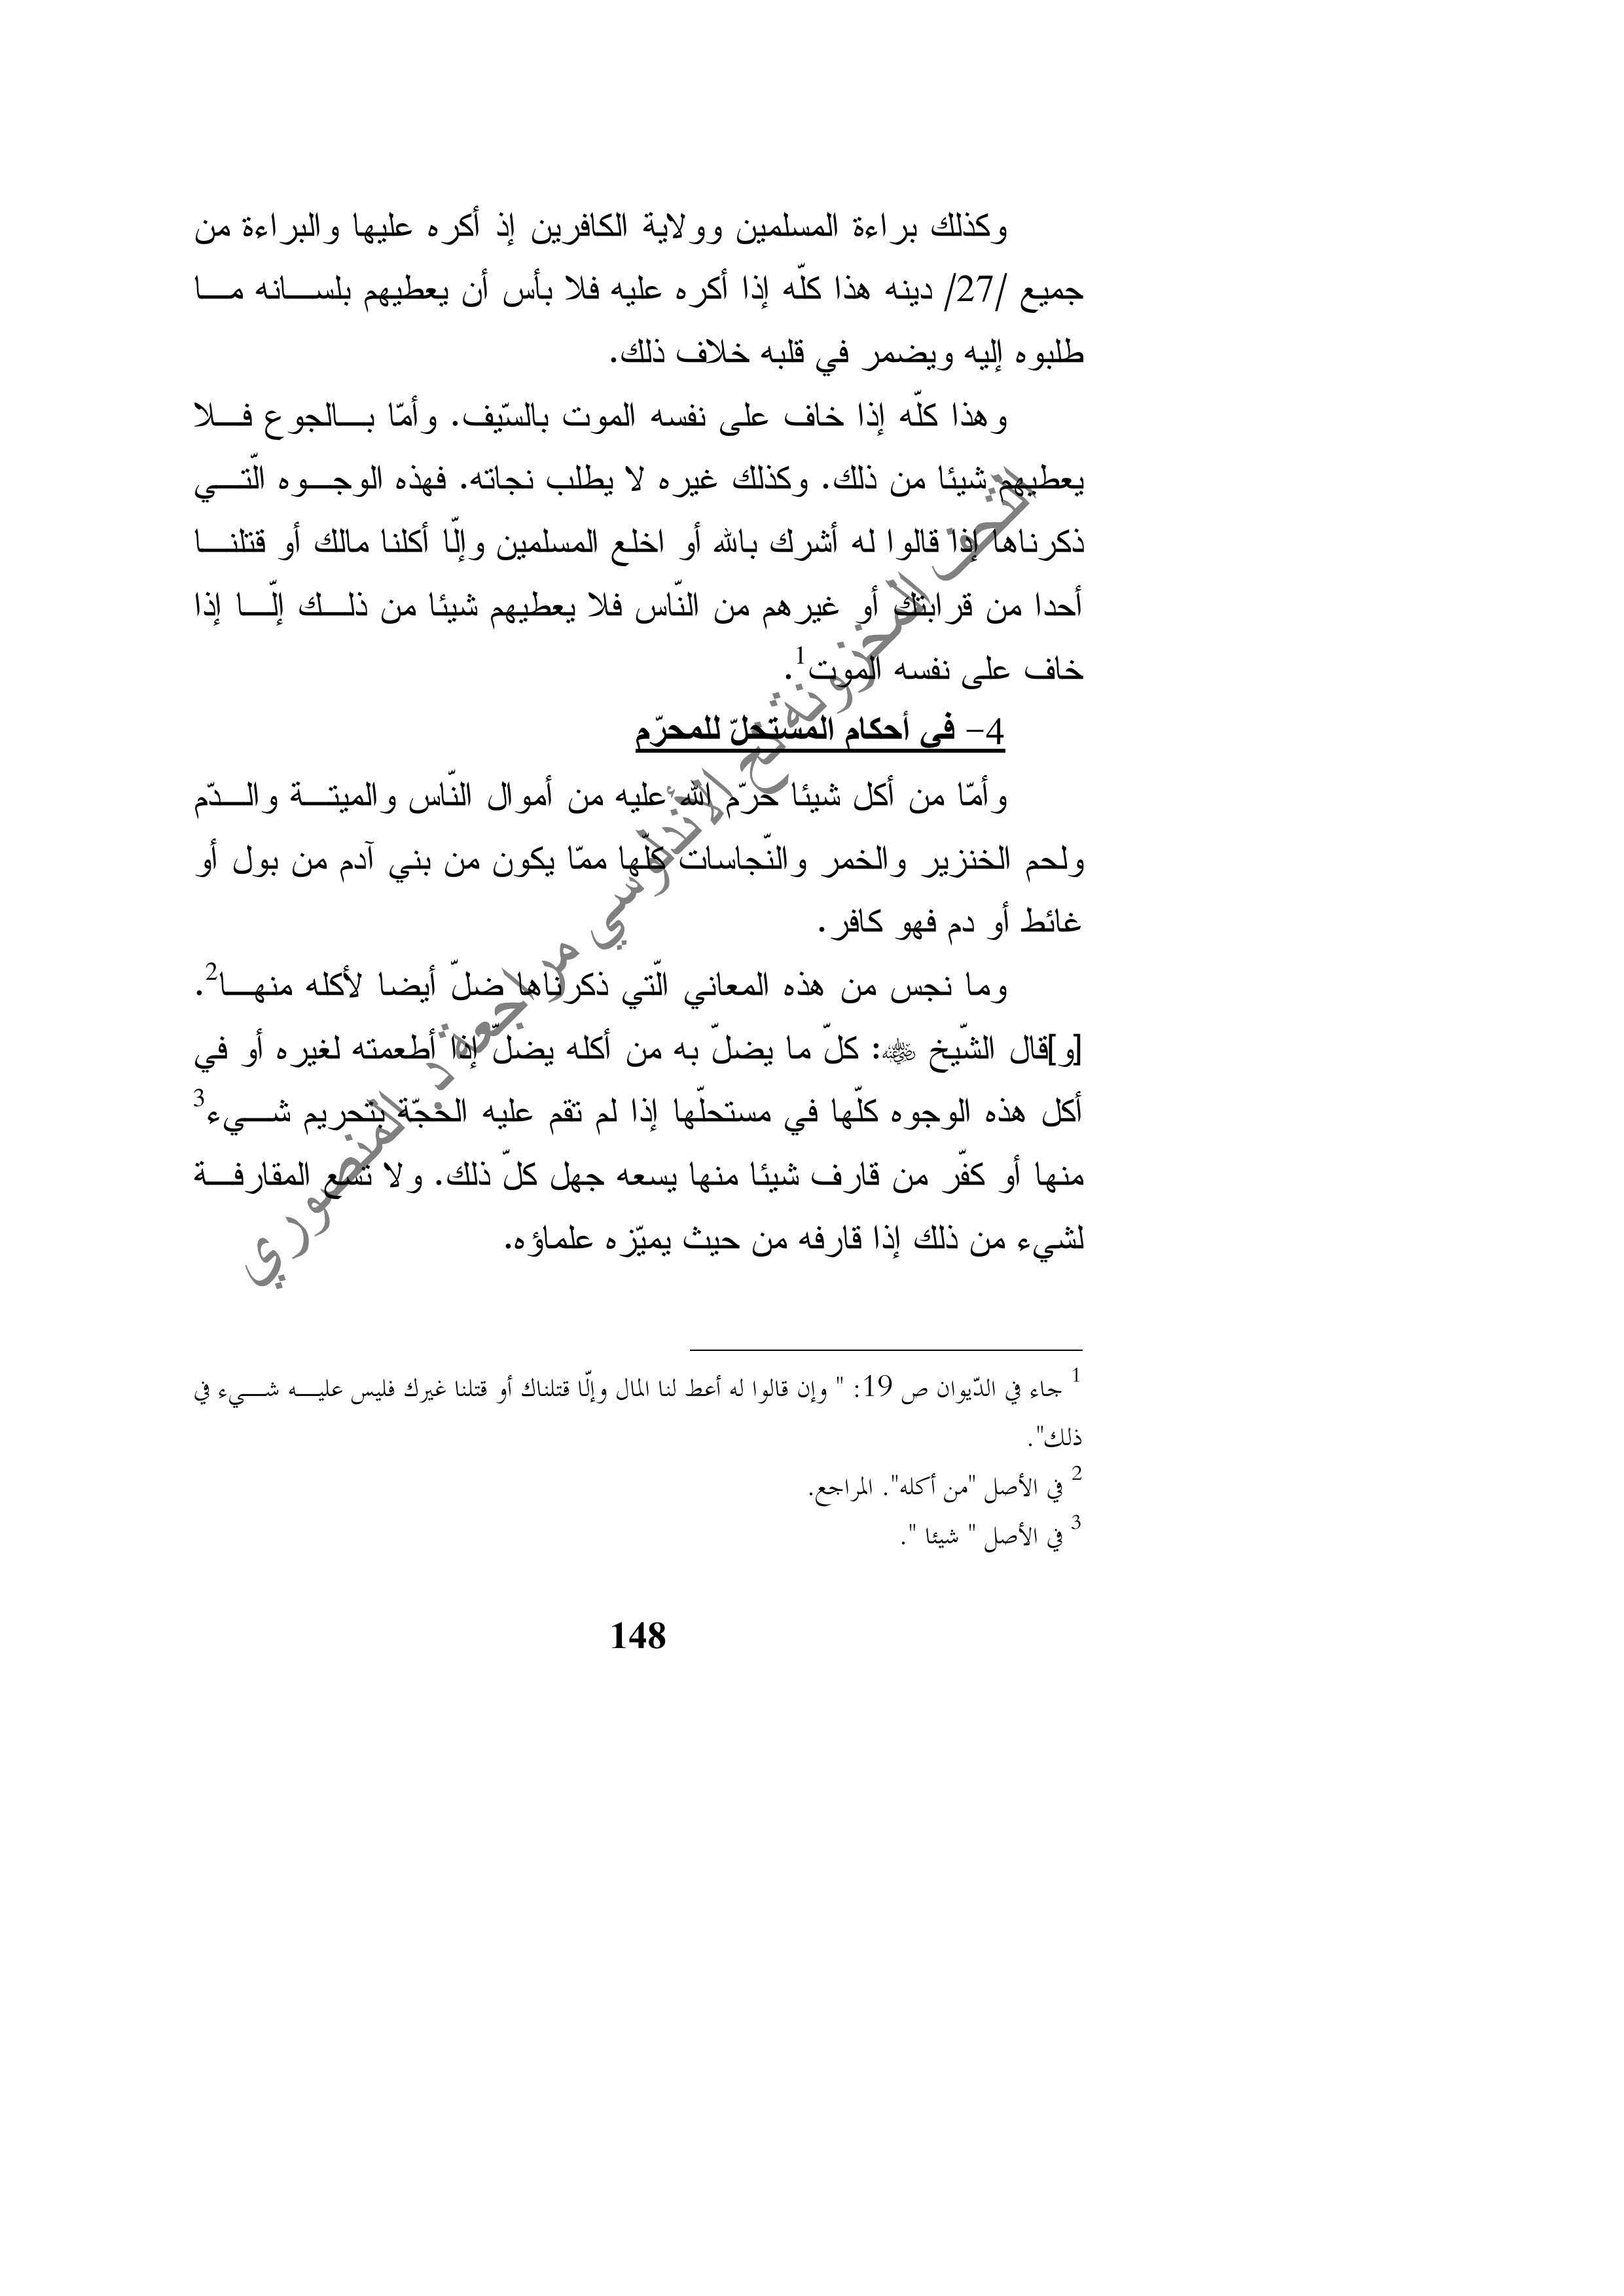 وكذلك براءة المسلمين وولاية الكافرين إذ أكره عليها والبراءة من
جميع /27/ دينه هذا كلّه إذا أكره عليه فلا بأس أن يعطيهم بلسانه ما
طلبوه إليه ويضمر في قلبه خلاف ذلك.
وهذا كلّه إذا خاف على نفسه الموت بالسّيف. وأمّا بالجوع فلا
يعطيهم شيئا من ذلك. وكذلك غيره لا يطلب نجاته. فهذه الوجوه الّتي
ذكرناها إذا قالوا له أشرك بالله أو اخلع المسلمين وإلّا أكلنا مالك أو قتلنا
أحدا من قرابتك أو غيرهم من النّاس فلا يعطيهم شيئا من ذلك إلّا إذا
خاف على نفسه الموت1.
4- في أحكام المستحلّ للمحرّم
وأمّا من أكل شيئا حرّم الله عليه من أموال النّاس والميتة والدّم
ولحم الخنزير والخمر والنّجاسات كلّها ممّا يكون من بني آدم من بول أو
غائط أو دم فهو كافر.
وما نجس من هذه المعاني الّتي ذكرناها ضلّ أيضا لأكله منها2.
[و]قال الشّيخ ﷺ: كلّ ما يضلّ به من أكله يضلّ إذا أطعمته لغيره أو في
أكل هذه الوجوه كلّها في مستحلّها إذا لم تقم عليه الحجّة بتحريم شيء3
منها أو كفّر من قارف شيئا منها يسعه جهل كلّ ذلك. ولا تسع المقارفة
لشيء من ذلك إذا قارفه من حيث يميّزه علماؤه.
1 جاء في الدّيوان ص 19: " وإن قالوا له أعط لنا المال وإلّا قتلناك أو قتلنا غيرك فليس عليه شيء في
ذلك".
2 في الأصل "من أكله". المراجع.
3 في الأصل " شيئا ".
148
التحف المخزونة تع الأندلوسي مراجعة د. المنصوري